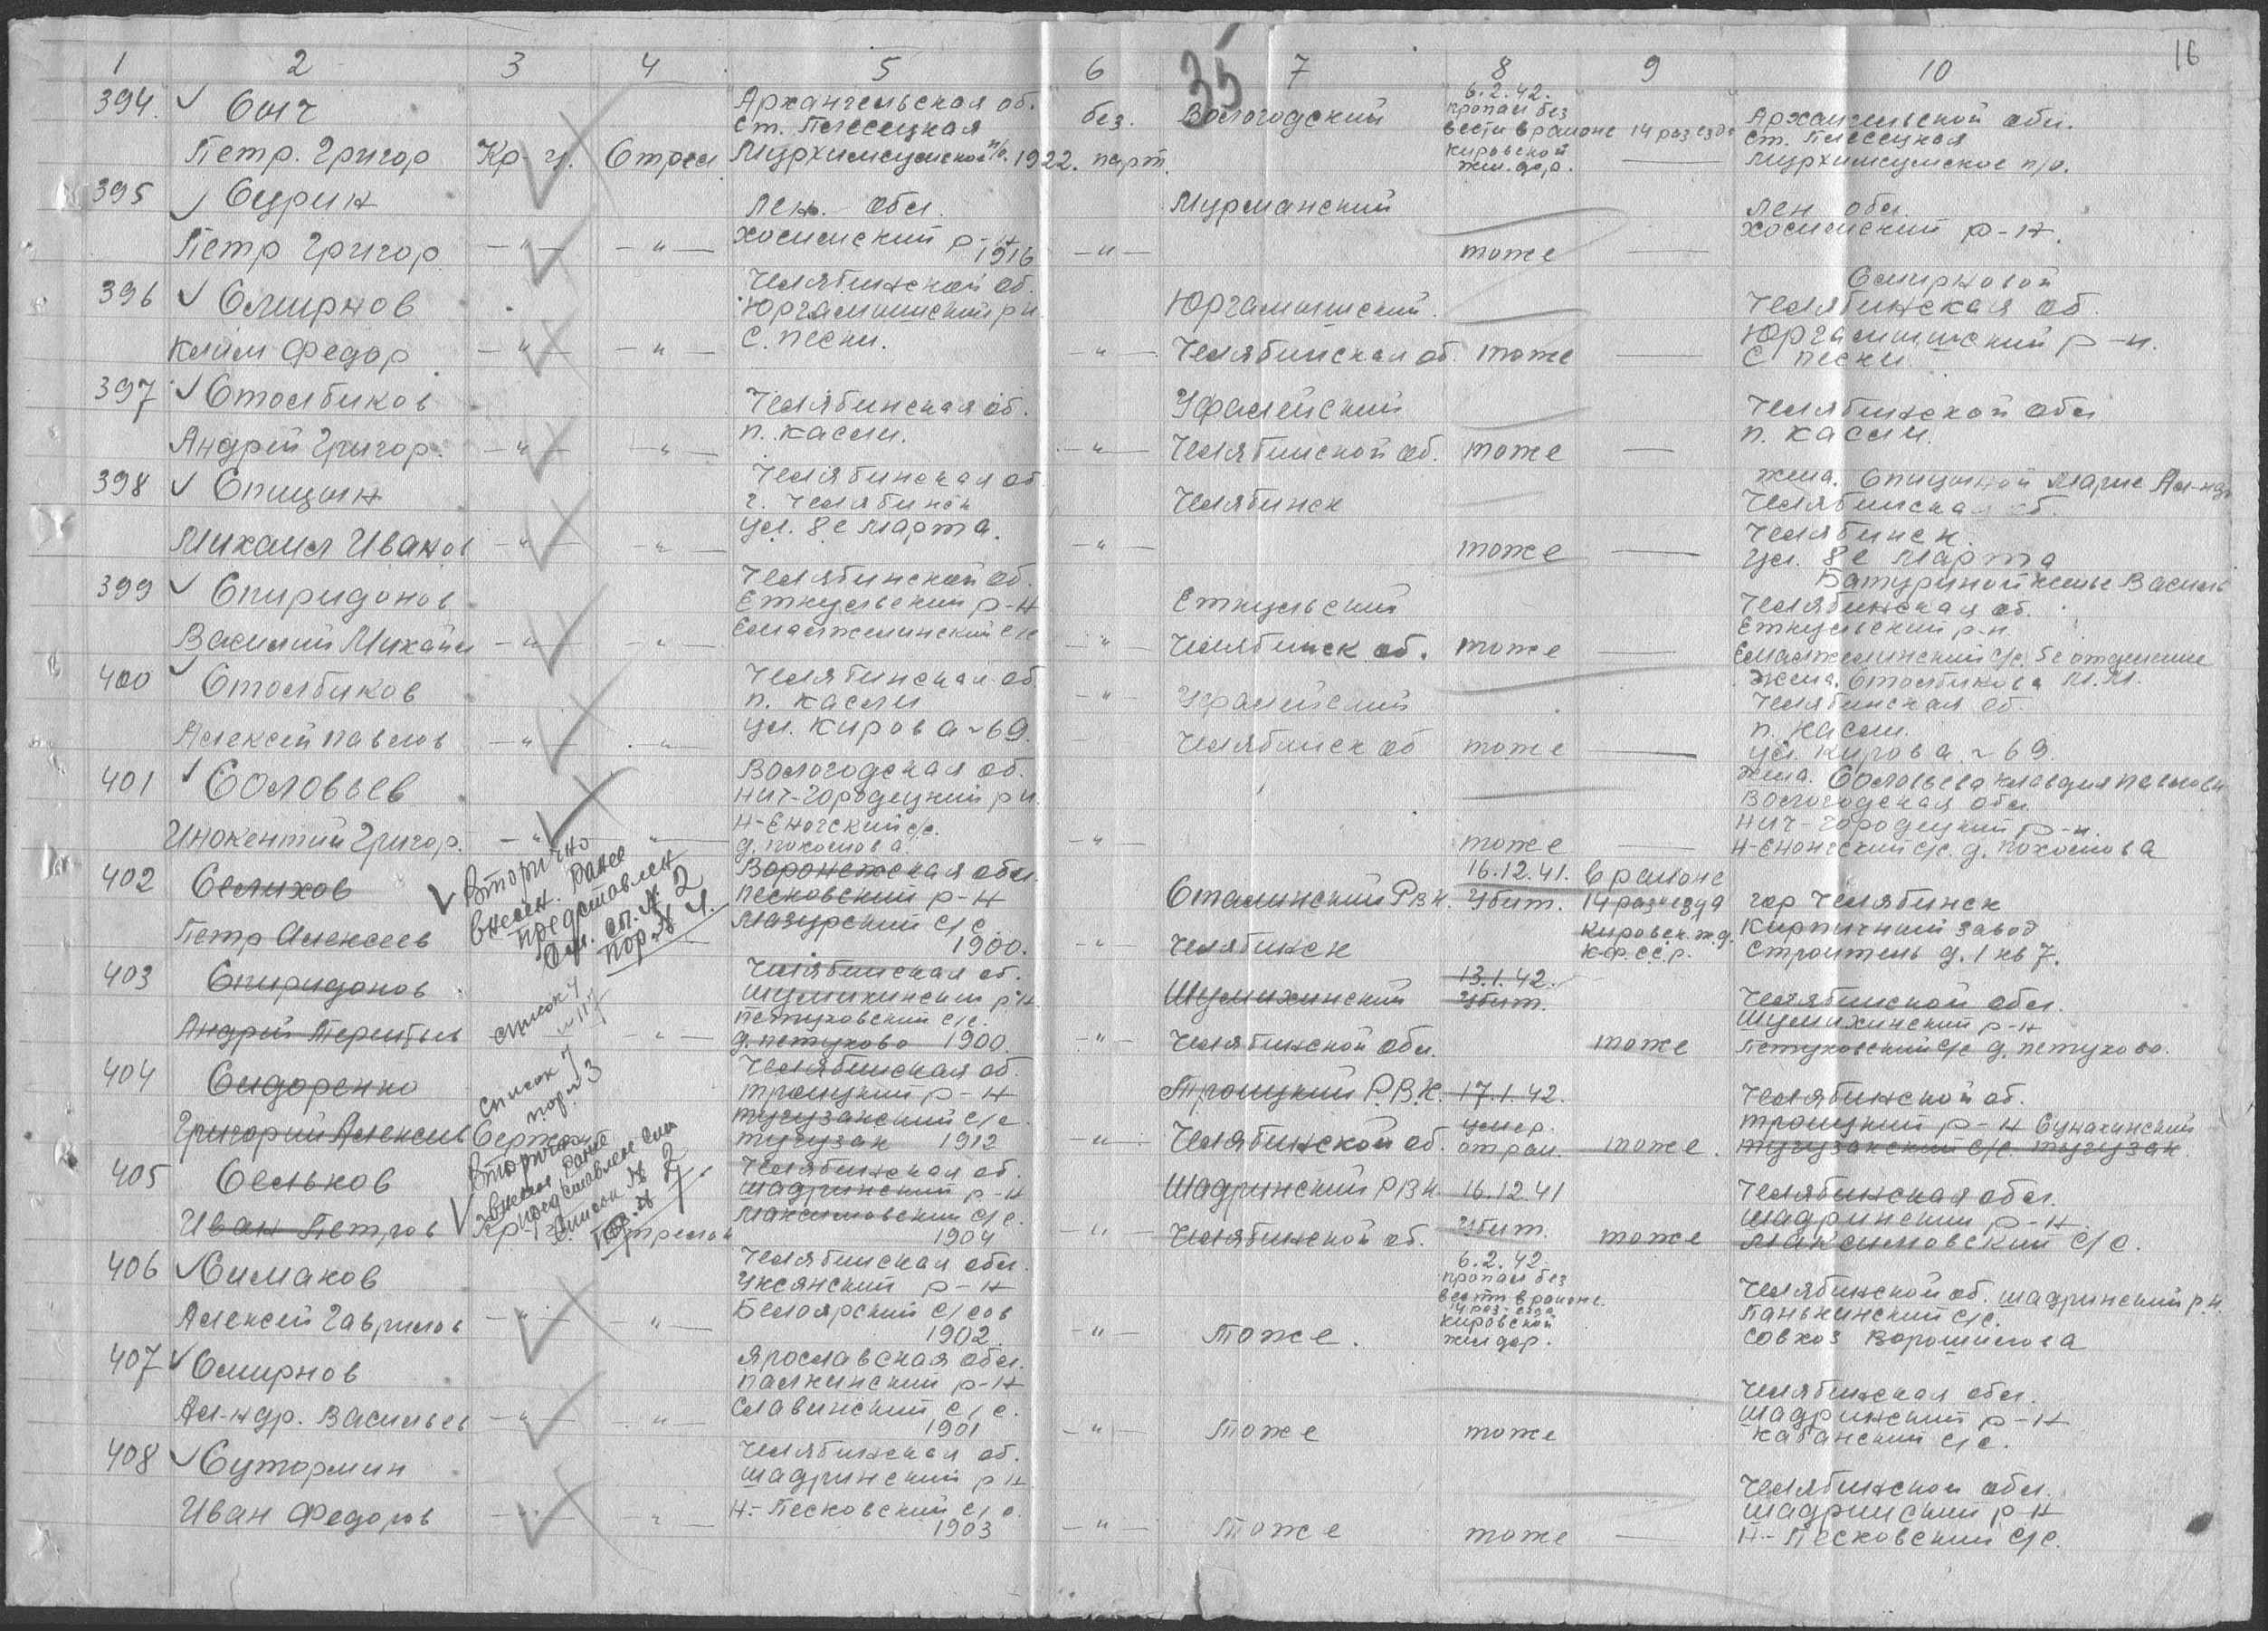 35
16
1 2 3 4 5 6 7 8 9 10
394. Сыч
Петр. Григор Кр-ц. Стрел
Архангельская об.
ст. Плесецкая
1922.
без.
парт.
Вологодский
6.2.42.
пропал без
вести в районе 14 разезда
кировской
жел.дор.
Архангельской обл.
ст. Плесецкая
395 Сурин
Петр Григор -"- -"-
Лен. обл.
р-н
1916
-"-
Мурманский
тоже
Лен обл.
р-н.
396 Смирнов
Клим Федор -"- -"-
Челябинской об.
Юргамышский р н
с. Пески.
-"-
Юргамышский.
Челябинская об. тоже
Смирновой
Челябинская об.
Юргамышский р-н.
с пески.
397 Столбиков
Андрей Григор. -"- -"-
Челябинская об.
п. Касли.
-"-
Уфалейский
Челябинской об. тоже
Челябинской обл
п. Касли.
398 Спицын
Михаил Иванов -"- -"-
Челябинская об
г. Челябинск
ул. 8е марта.
-"-
Челябинск
тоже
жена. Спицыной Марие Ал-нд
Челябинская об.
Челябинск.
ул. 8е Марта
399 Спиридонов
Василий Михайл -"- -"-
Челябинской об.
Еткульский р-н
Еманжелинский с/с
-"-
Еткульский
Челябинск об. тоже
Батуриной Василь
Челябинская об.
Еткульский р-н.
Еманжелинский с/с. 5е отделение
400 Столбиков
Алексей Павлов -"- -"-
Челябинская об
п. Касли
ул. Кирова ~ 69.
-"-
Уфалейский
Челябинск об тоже
жена. Столбикова М.М.
Челябинская об.
п. Касли.
ул. Кирова ~ 69.
401 Соловьев
Инокентий Григор. -"- -"-
Вологодская об.
Нич-Городецкий р н.
с/с.
-"-
тоже
жена. Соловьева Клавдия Павловн
Вологодская обл.
Нич-Городецкий р-н.
с/с. д.
402 Селихов
Петр Алексеев
Вторично
внесен. Ранее
представлен
сп. № 2
пор. № 4.
Воронежская обл.
Песковский р-н
Мазурский с/с
1900.
-"-
Сталинский РВК.
Челябинск
16.12.41.
Убит.
в районе
14 разъезда
Кировск. ж.д.
К.Ф.С.С.Р.
гор Челябинск
Кирпичный завод
Строитель д. 1 кв 7.
403 Спиридонов
Андрей Терентьев
список 4
Челябинская об.
Шумихинский р-н.
Петуховский с/с.
д. Петухово 1900.
-"-
Шумихинский
Челябинской обл.
13.1.42.
Убит.
тоже
Челябинской обл.
Шумихинский р-н
Петуховский с/с д. Петухово.
404 Сидоренко
Григорий Алексеев Сержан
список 7
пор. 3
Челябинская об.
Троицкий р-н
с/с
1912
-"-
Троицкий Р.В.К.
Челябинской об.
17.1.42.
умер.
от ран.
тоже.
Челябинской об.
Троицкий р-н
с/с.
405 Сельков
Иван Петров Кр-ц Стрелок
Вторично
внесен ранее
представлен
список № 2
пор. №
Челябинская об.
Шадринский р-н
Максимовский с/с.
1904
-"-
Шадринский РВК
Челябинской об.
16.12.41
Убит.
тоже
Челябинская обл.
Шадринский р-н.
Максимовский с/с.
406 Симаков
Алексей Гаврилов -"- -"-
Челябинская обл.
Уксянский р-н
Белоярский с/сов
1902.
-"-
Тоже.
6.2.42.
пропал без
вести в районе.
14 раз-езда
Кировской
жел дор.
Челябинской об. Шадринский р.н.
Панькинский с/с.
совхоз Ворошилова
407 Смирнов
Ал-ндр. Васильев -"- -"-
Ярославская обл.
Палкинский р-н
Славинский с/с.
1901
-"-
Тоже
тоже
Челябинская обл.
Шадринский р-н
Кабанский с/с.
408 Сутормин
Иван Федоров -"- -"-
Челябинская об.
Шадринский р н
Н.-Песковский с/с.
1903
-"-
Тоже
тоже
Челябинской обл.
Шадринский р-н
Н.-Песковский с/с.